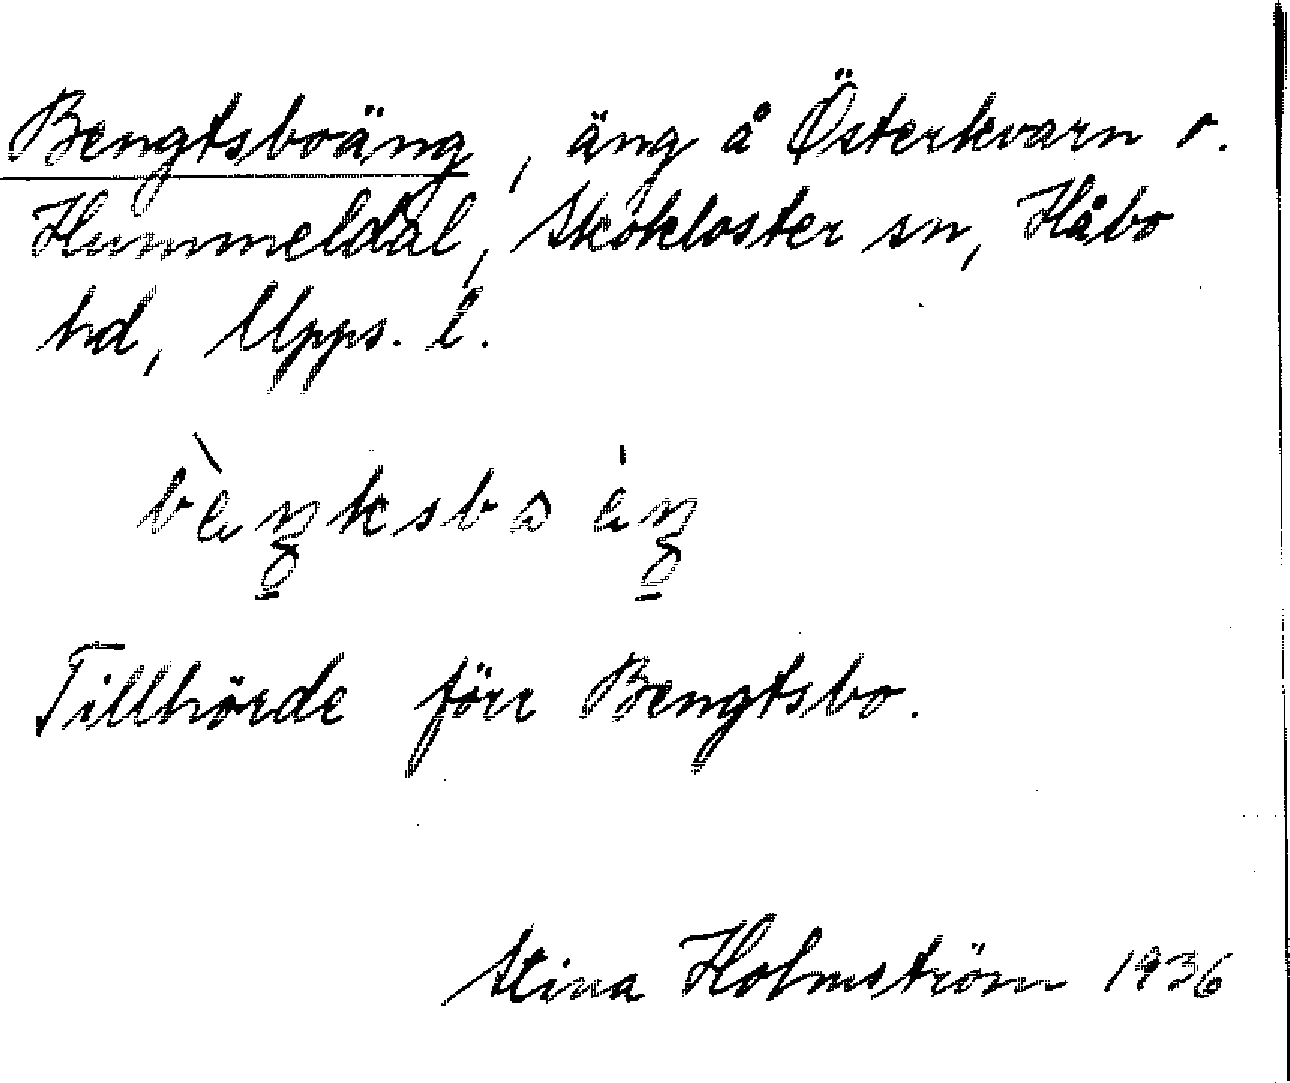 Bengtsboäng, äng å Österkvarn o.
Hummeldal, Skokloster sn, Håbo
hd, Upps. l.
bὲŋksbɷ ɛ́ŋ
Tillhörde förr Bengtsbo.
Stina Holmström 1936